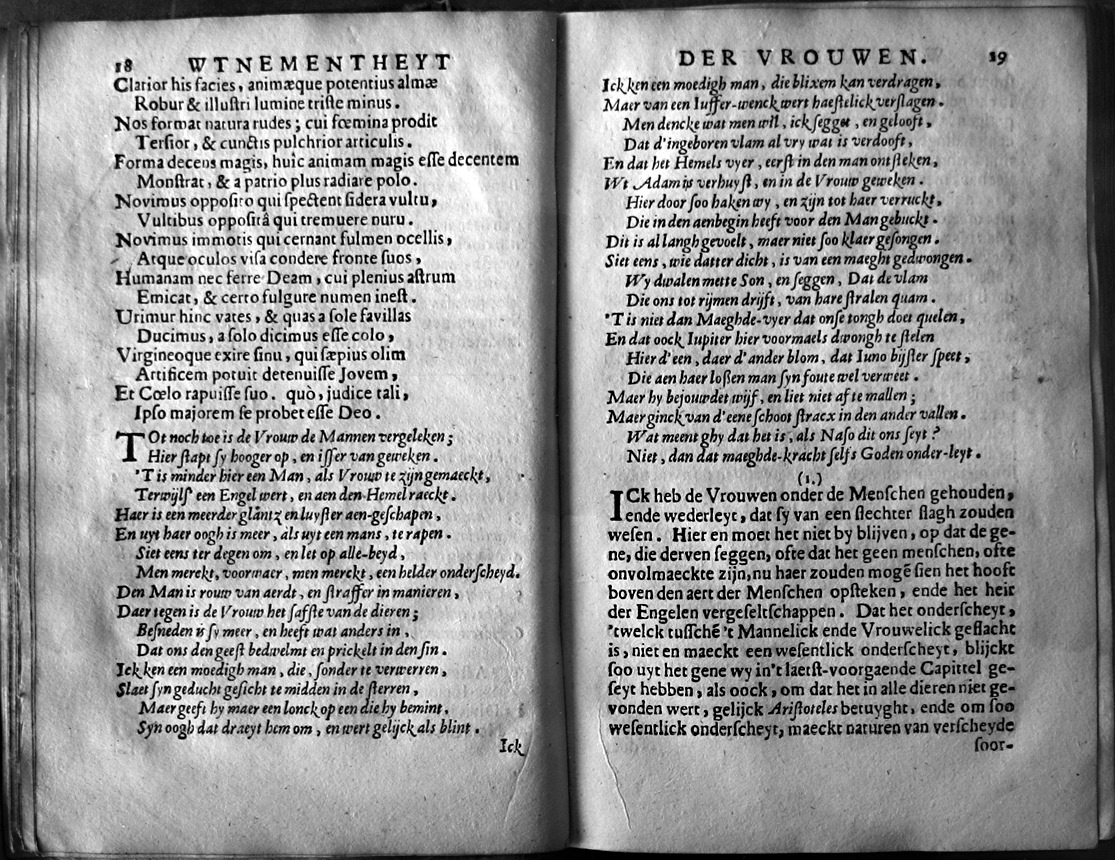 18 WTNEMENTHEYT
Clarior his facies, animæque potentius almæ
Robur & illuſtri lumine triſte minus.
Nos format natura rudes; cui fœmina prodit
Terſior, & cunctis pulchrior articulis.
Forma decens magis, huic animam magis eſſe decentem
Monſtrat, & a patrio plus radiare polo.
Novimus oppoſito qui ſpectent ſidera vultu,
Vultibus oppoſitâ qui tremuere nuru.
Novimus immotis qui cernant fulmen ocellis,
Atque oculos viſa condere fronte ſuos,
Humanam nec ferre Deam, cui plenius aſtrum
Emicat, & certo fulgure numen ineſt.
Urimur hinc vates, & quas a ſole favillas
Ducimus, a ſolo dicimus eſſe colo,
Virgineoque exire ſinu, qui ſæpius olim
Artificem potuit detenuiſſe Jovem,
Et Cœlo rapuiſſe ſuo. quò, judice tali,
Ipſo majorem ſe probet eſſe Deo.
TOt noch toe is de Vrouw de Mannen vergeleken;
Hier ſtapt ſy hooger op, en iſſer van geweken.
'T is minder hier een Man, als Vrouw te zijn gemaeckt,
Terwijlſ' een Engel wert, en aen den Hemel raeckt.
Haer is een meerder glantz en luyſter aen-geſchapen,
En uyt haer oogh is meer, als uyt een mans, te rapen.
Siet eens ter degen om, en let op alle-beyd,
Men merckt, voorwaer, men merckt, een helder onderſcheyd.
Den Man is rouw van aerdt, en ſtraffer in manieren,
Daer tegen is de Vrouw het ſafſte van de dieren;
Beſneden is ſy meer, en heeft wat anders in,
Dat ons den geeſt bedwelmt en prickelt in den ſin.
Ick ken een moedigh man, die, ſonder te verwerren,
Slaet ſyn geducht geſicht te midden in de ſterren,
Maer geeft hy maer een lonck op een die hy bemint,
Syn oogh dat draeyt hem om, en wert gelijck als blint.
Ick
DER VROUWEN. 19
Ick ken een moedigh man, die blixem kan verdragen,
Maer van een Iuffer-wenck wert haeſtelick verſlagen.
Men dencke wat men wil, ick ſegget, en gelooft,
Dat d'ingeboren vlam al vry wat is verdooft,
En dat het Hemels vyer, eerſt in den man ontſteken,
Wt Adam is verhuyſt, en in de Vrouw geweken.
Hier door ſoo haken wy, en zijn tot haer verruckt,
Die in den aenbegin heeft voor den Man gebuckt.
Dit is al langh gevoelt, maer niet ſoo klaer geſongen.
Siet eens, wie datter dicht, is van een maeght gedwongen.
Wy dwalen mette Son, en ſeggen, Dat de vlam
Die ons tot rijmen drijft, van hare ſtralen quam.
'T is niet dan Maeghde-vyer dat onſe tongh doet quelen,
En dat oock Iupiter hier voormaels dwongh te ſtelen
Hier d'een, daer d'ander blom, dat Iuno bijſter ſpeet,
Die aen haer loßen man ſyn foute wel verweet.
Maer hy bejouwdet wijf, en liet niet af te mallen;
Maer ginck van d'eene ſchoot ſtracx in den ander vallen.
Wat meent ghy dat het is, als Naſo dit ons ſeyt?
Niet, dan dat maeghde-kracht ſelfs Goden onder-leyt.
(1.)
ICk heb de Vrouwen onder de Menſchen gehouden,
ende wederleyt, dat ſy van een ſlechter ſlagh zouden
weſen. Hier en moet het niet by blijven, op dat de ge-
ne, die derven ſeggen, ofte dat het geen menſchen, ofte
onvolmaeckte zijn, nu haer zouden mogē ſien het hooft
boven den aert der Menſchen opſteken, ende het heir
der Engelen vergeſeltſchappen. Dat het onderſcheyt,
'twelck tuſſchē 't Mannelick ende Vrouwelick geſlacht
is, niet en maeckt een weſentlick onderſcheyt, blijckt
ſoo uyt het gene wy in't laetſt-voorgaende Capittel ge-
ſeyt hebben, als oock, om dat het in alle dieren niet ge-
vonden wert, gelijck Ariſtoteles betuyght, ende om ſoo
weſentlick onderſcheyt, maeckt naturen van verſcheyde
ſoor-